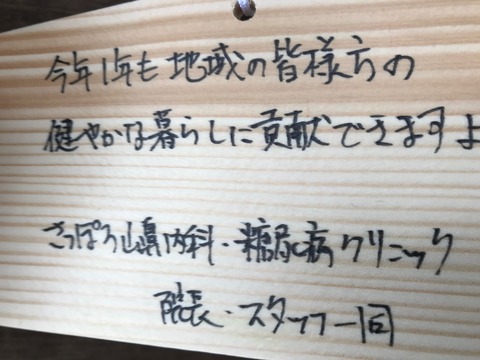 今年1年も地域の皆様方の
健やかな暮らしに貢献できますよ
さっぽろ山鼻内科・糖尿病クリニック
院長・スタッフ一同